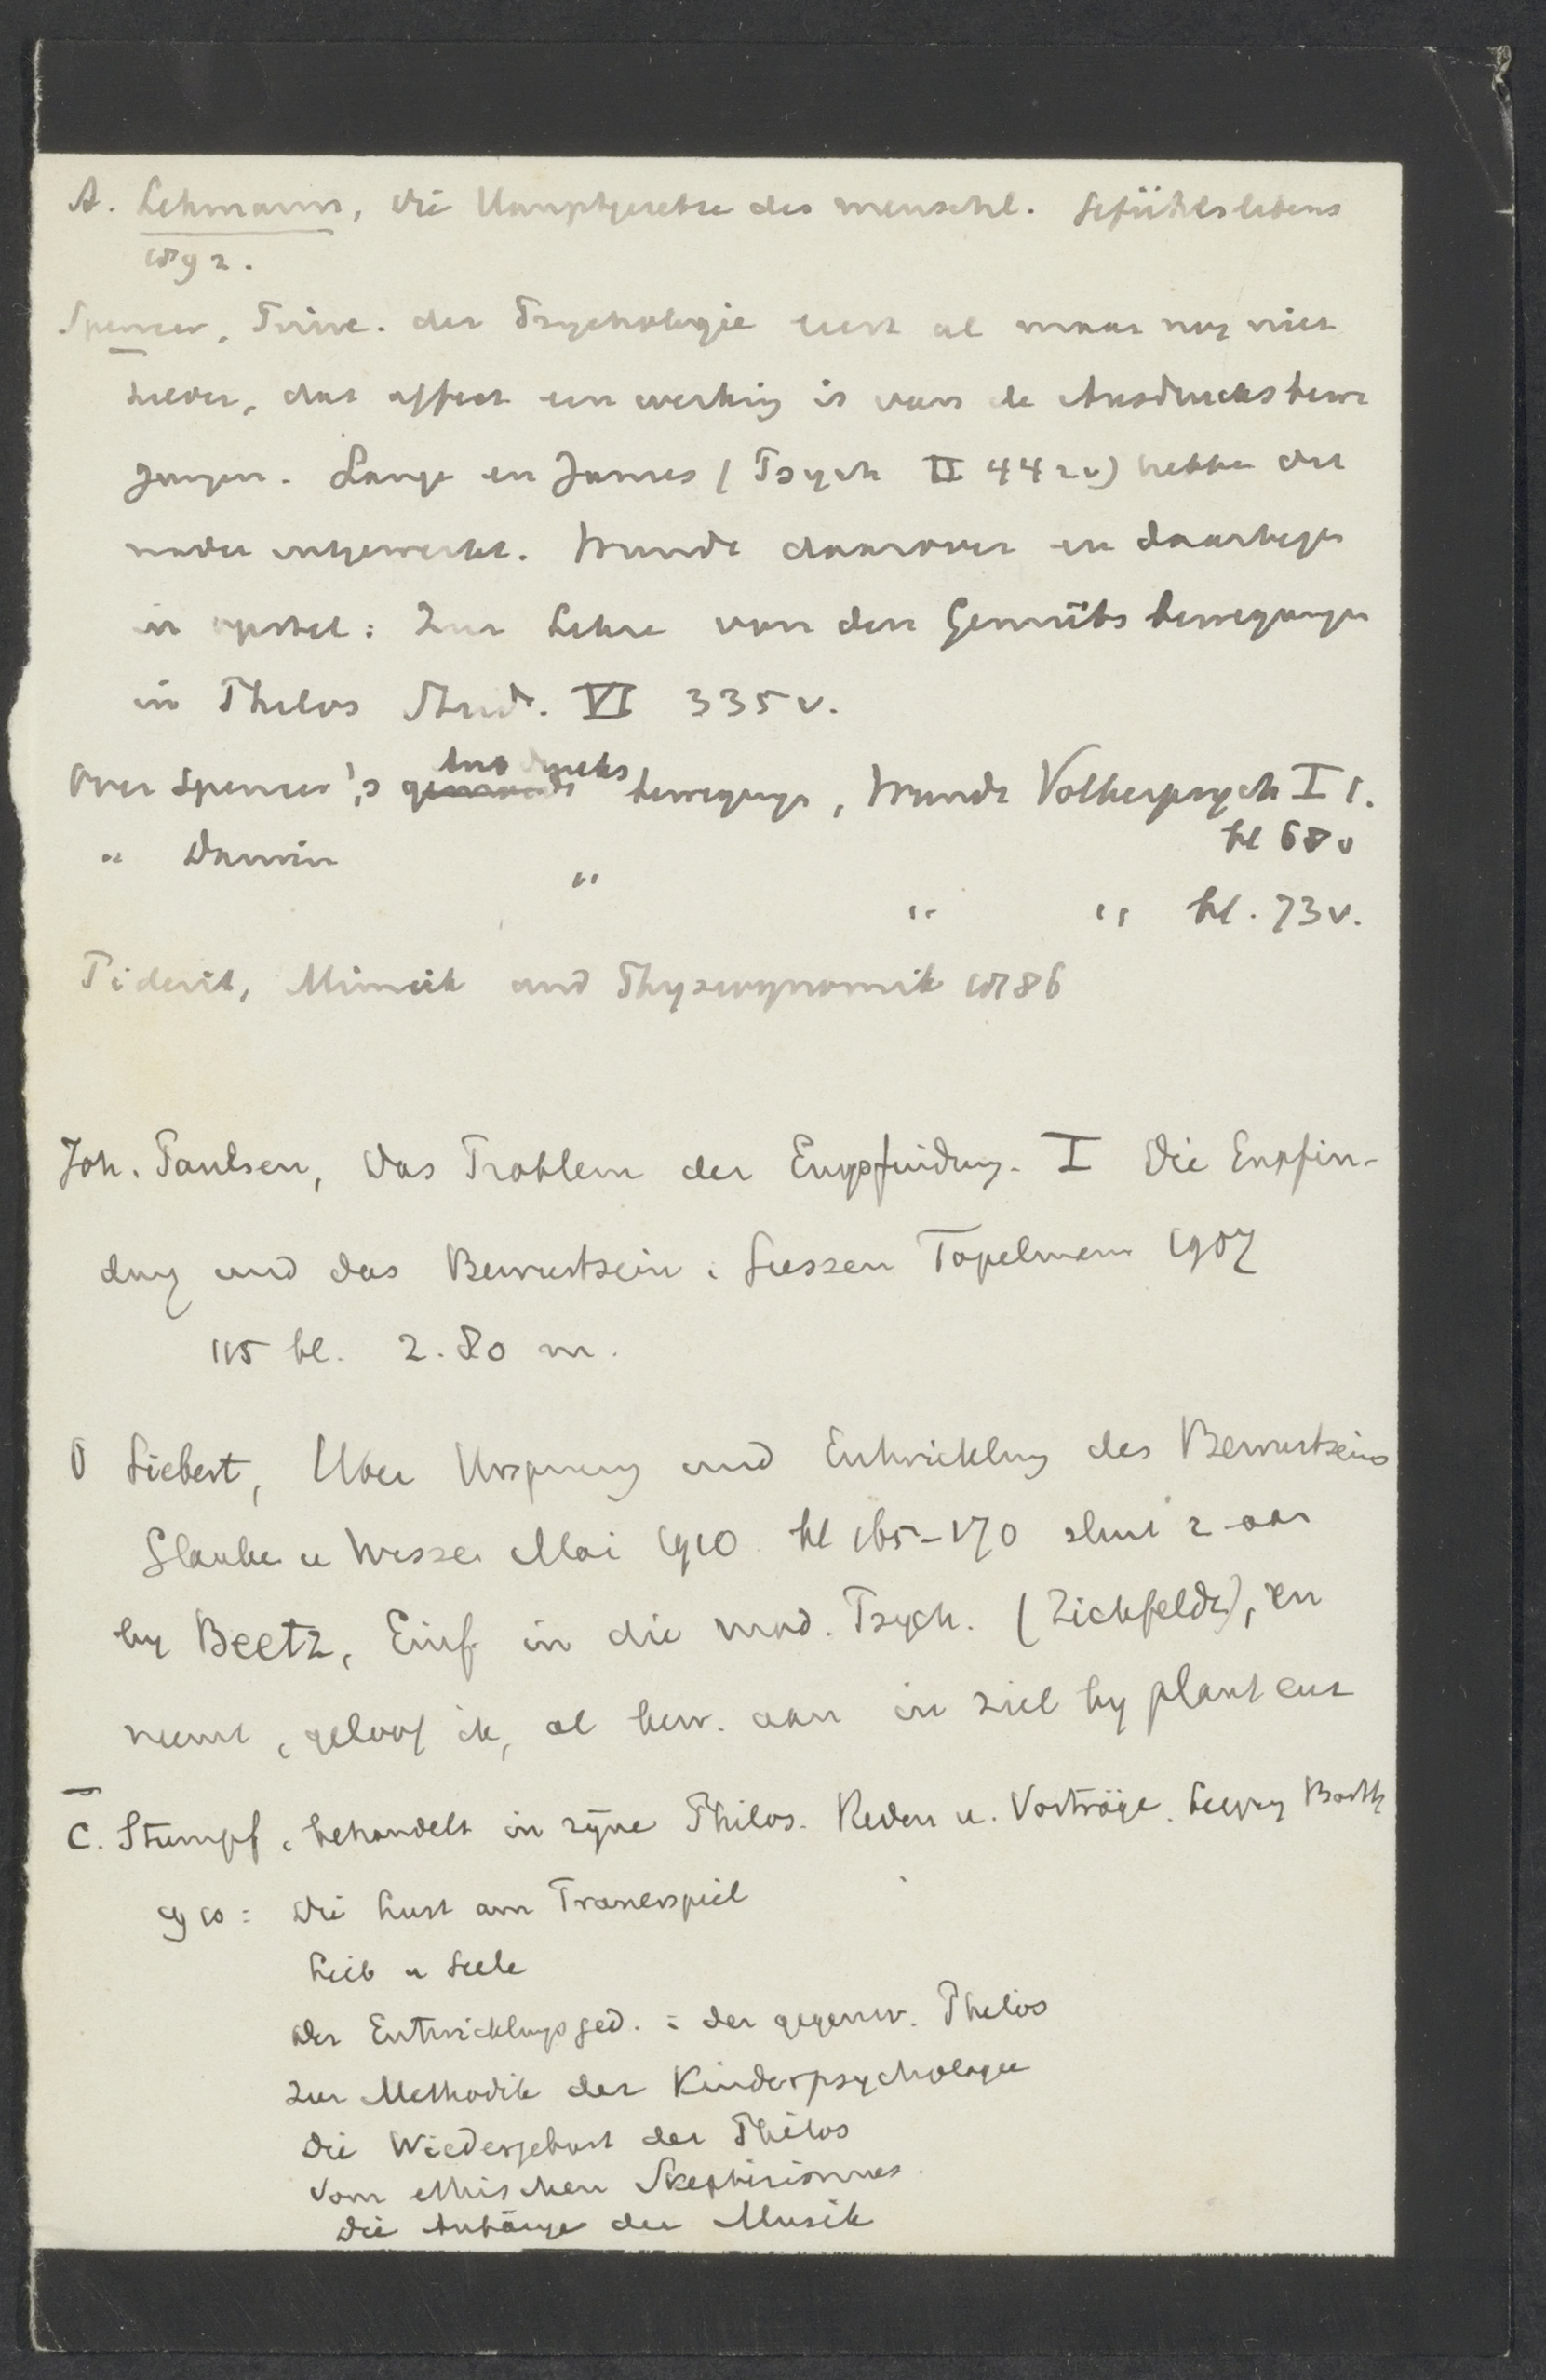 A. Lehmann, Die Hauptgesetze des menschl. Gefühlslebens
1892.
Spencer, Princ. der Psychologie leert al maar nog niet
helder, dat affect een werking is van de Ausdrucksbewe
gungen. Lange en James (Psych II 442v) hebben dit
nader uitgewerkt. Wundt daarover en daartegen
in opstel: Zur Lehre von den Gemütsbewegungen
in Philos Stud. VI 335 v.
Over Spencer's Ausdrucksbewegunge, Wundt Volkerpsych I 1.
bl 68v
" Darwin "
" " bl. 73 v.
Piderit, Mimik und Physiognomik 1886
Joh. Paulsen, Das Problem der Empfindung. I Die Empfin-
dung und das Bewustsein. Giessen Topelmann 1907
115 bl. 2.80 m.
O Siebert, Uber Ursprung und Entwicklung des Bewustseins
Glaube u Wissen Mai 1910 bl 165-170 sluit z. aan
by Beetz, Einf. in die mod. Psych. (Zickfeldt), en
neemt, geloof ik, al bew. aan in ziel by plant enz
C. Stumpf, behandelt in zyne Philos. Reden u. Vorträge. Leipzig Barth
1910: Die Lust am Trauerspiel
Leib u Seele
Der Entwicklungsged. i. der gegenw. Philos
Zur Methodik der Kinderpsychologie
Die Wiedergeburt der Philos
Vom ethischen Skeptizismus.
Die Anfänge der Musik